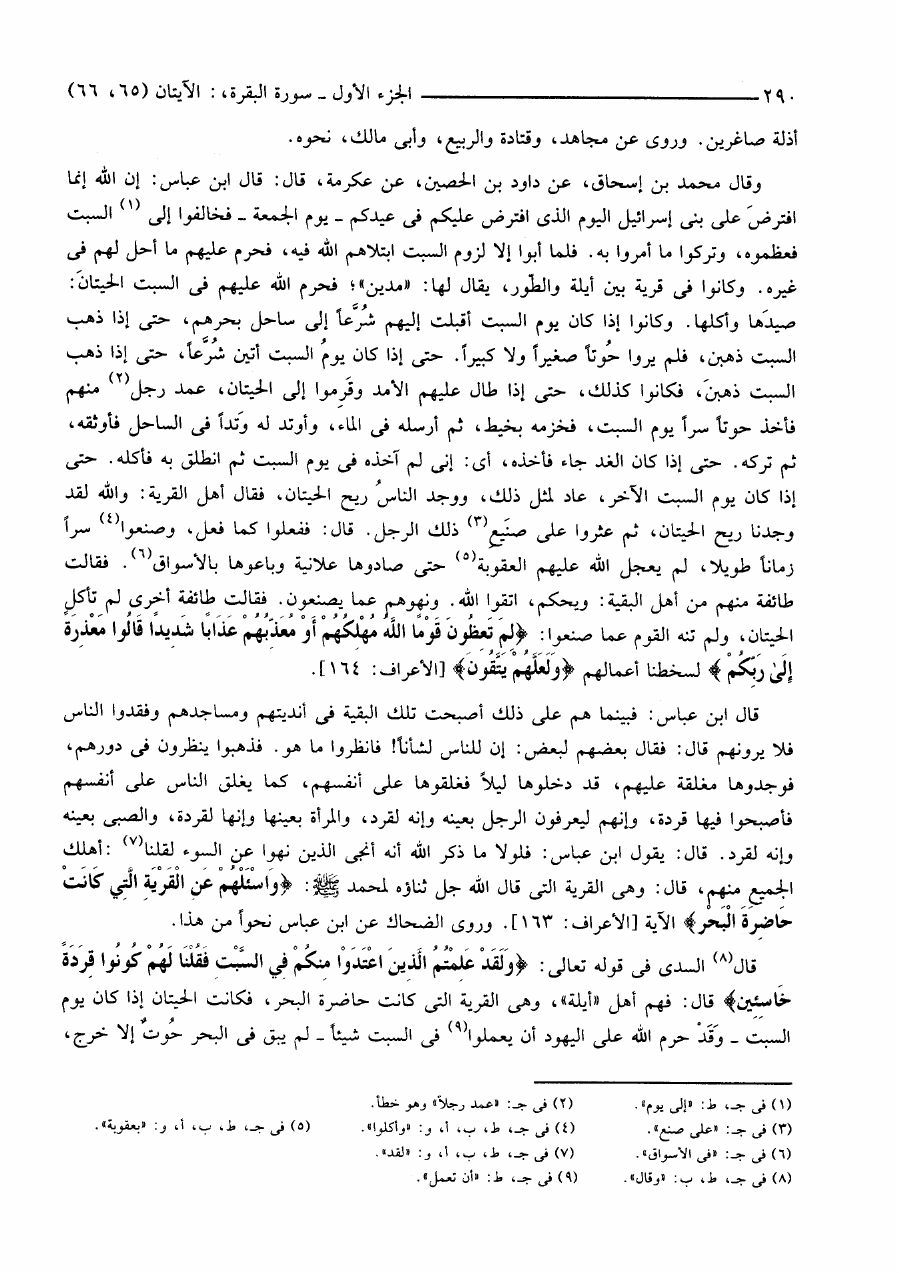 ٢٩٠ ــــــــــــــــــــــــــــ الجزء الأول ـ سورة البقرة، : الآيتان (٦٥، ٦٦)
أذلة صاغرين. وروى عن مجاهد، وقتادة والربيع، وأبى مالك، نحوه.
وقال محمد بن إسحاق، عن داود بن الحصين، عن عكرمة، قال: قال ابن عباس: إن الله إنما
افترضَ على بنى إسرائيل اليوم الذى افترض عليكم فى عيدكم ـ يوم الجمعة ـ فخالفوا إلى (١) السبت
فعظموه، وتركوا ما أمروا به. فلما أبوا إلا لزوم السبت ابتلاهم الله فيه، فحرم عليهم ما أحل لهم فى
غيره. وكانوا فى قرية بين أيلة والطّور، يقال لها: «مدين»؛ فحرم الله عليهم فى السبت الحيتانَ:
صيدَها وأكلها. وكانوا إذا كان يوم السبت أقبلت إليهم شُرَّعاً إلى ساحل بحرهم، حتى إذا ذهب
السبت ذهبن، فلم يروا حُوتاً صغيراً ولا كبيراً. حتى إذا كان يومُ السبت أتين شُرَّعاً، حتى إذا ذهب
السبت ذهبنَ، فكانوا كذلك، حتى إذا طال عليهم الأمد وقَرِموا إلى الحيتان، عمد رجل(٢) منهم
فأخذ حوتاً سراً يوم السبت، فخزمه بخيط، ثم أرسله فى الماء، وأوتد له وَتَداً فى الساحل فأوثقه،
ثم تركه. حتى إذا كان الغد جاء فأخذه، أى: إنى لم آخذه فى يوم السبت ثم انطلق به فأكله. حتى
إذا كان يوم السبت الآخر، عاد لمثل ذلك، ووجد الناسُ ريح الحيتان، فقال أهل القرية: والله لقد
وجدنا ريح الحيتان، ثم عثروا على صنَيع(٣) ذلك الرجل. قال: ففعلوا كما فعل، وصنعوا(٤) سراً
زماناً طويلا، لم يعجل الله عليهم العقوبة(٥) حتى صادوها علانية وباعوها بالأسواق(٦). فقالت
طائفة منهم من أهل البقية: ويحكم، اتقوا الله. ونهوهم عما يصنعون. فقالت طائفة أخرى لم تأكل
الحيتان، ولم تنه القوم عما صنعوا: ﴿لِمَ تَعِظُونَ قَوْمًا اللَّهُ مُهْلِكُهُمْ أَوْ مُعَذِّبُهُمْ عَذَابًا شَدِيدًا قَالُوا مَعْذِرَةً
إِلَىٰ رَبِّكُمْ﴾ لسخطنا أعمالهم ﴿وَلَعَلَّهُمْ يَتَّقُونَ﴾ [الأعراف: ١٦٤].
قال ابن عباس: فبينما هم على ذلك أصبحت تلك البقية فى أنديتهم ومساجدهم وفقدوا الناس
فلا يرونهم قال: فقال بعضهم لبعض: إن للناس لشأناً! فانظروا ما هو. فذهبوا ينظرون فى دورهم،
فوجدوها مغلقة عليهم، قد دخلوها ليلاً فغلقوها على أنفسهم، كما يغلق الناس على أنفسهم
فأصبحوا فيها قردة، وإنهم ليعرفون الرجل بعينه وإنه لقرد، والمرأة بعينها وإنها لقردة، والصبى بعينه
وإنه لقرد. قال: يقول ابن عباس: فلولا ما ذكر الله أنه أنجى الذين نهوا عن السوء لقلنا(٧) :أهلك
الجميع منهم، قال: وهى القرية التى قال الله جل ثناؤه لمحمد ﷺ: ﴿وَاسْئَلْهُمْ عَنِ الْقَرْيَةِ الَّتِي كَانَتْ
حَاضِرَةَ الْبَحْرِ﴾ الآية [الأعراف: ١٦٣]. وروى الضحاك عن ابن عباس نحواً من هذا.
قال(٨) السدى فى قوله تعالى: ﴿وَلَقَدْ عَلِمْتُمُ الَّذِينَ اعْتَدَوْا مِنكُمْ فِي السَّبْتِ فَقُلْنَا لَهُمْ كُونُوا قِرَدَةً
خَاسِئِينَ﴾ قال: فهم أهل «أيلة»، وهى القرية التى كانت حاضرة البحر، فكانت الحيتان إذا كان يوم
السبت ـ وقَدْ حرم الله على اليهود أن يعملوا(٩) فى السبت شيئاً ـ لم يبق فى البحر حُوتٌ إلا خرج،
(١) فى جـ، ط: «إلى يوم». (٢) فى جـ: «عمد رجلاً» وهو خطأ.
(٣) فى جـ: «على صنع». (٤) فى جـ، ط، ب، أ، و: «وأكلوا». (٥) فى جـ، ط، ب، أ، و: «بعقوبة».
(٦) فى جـ: «فى الأسواق». (٧) فى جـ، ط، ب، أ، و: «لقد».
(٨) فى جـ، ط، ب: «وقال». (٩) فى جـ، ط: «أن تعمل».